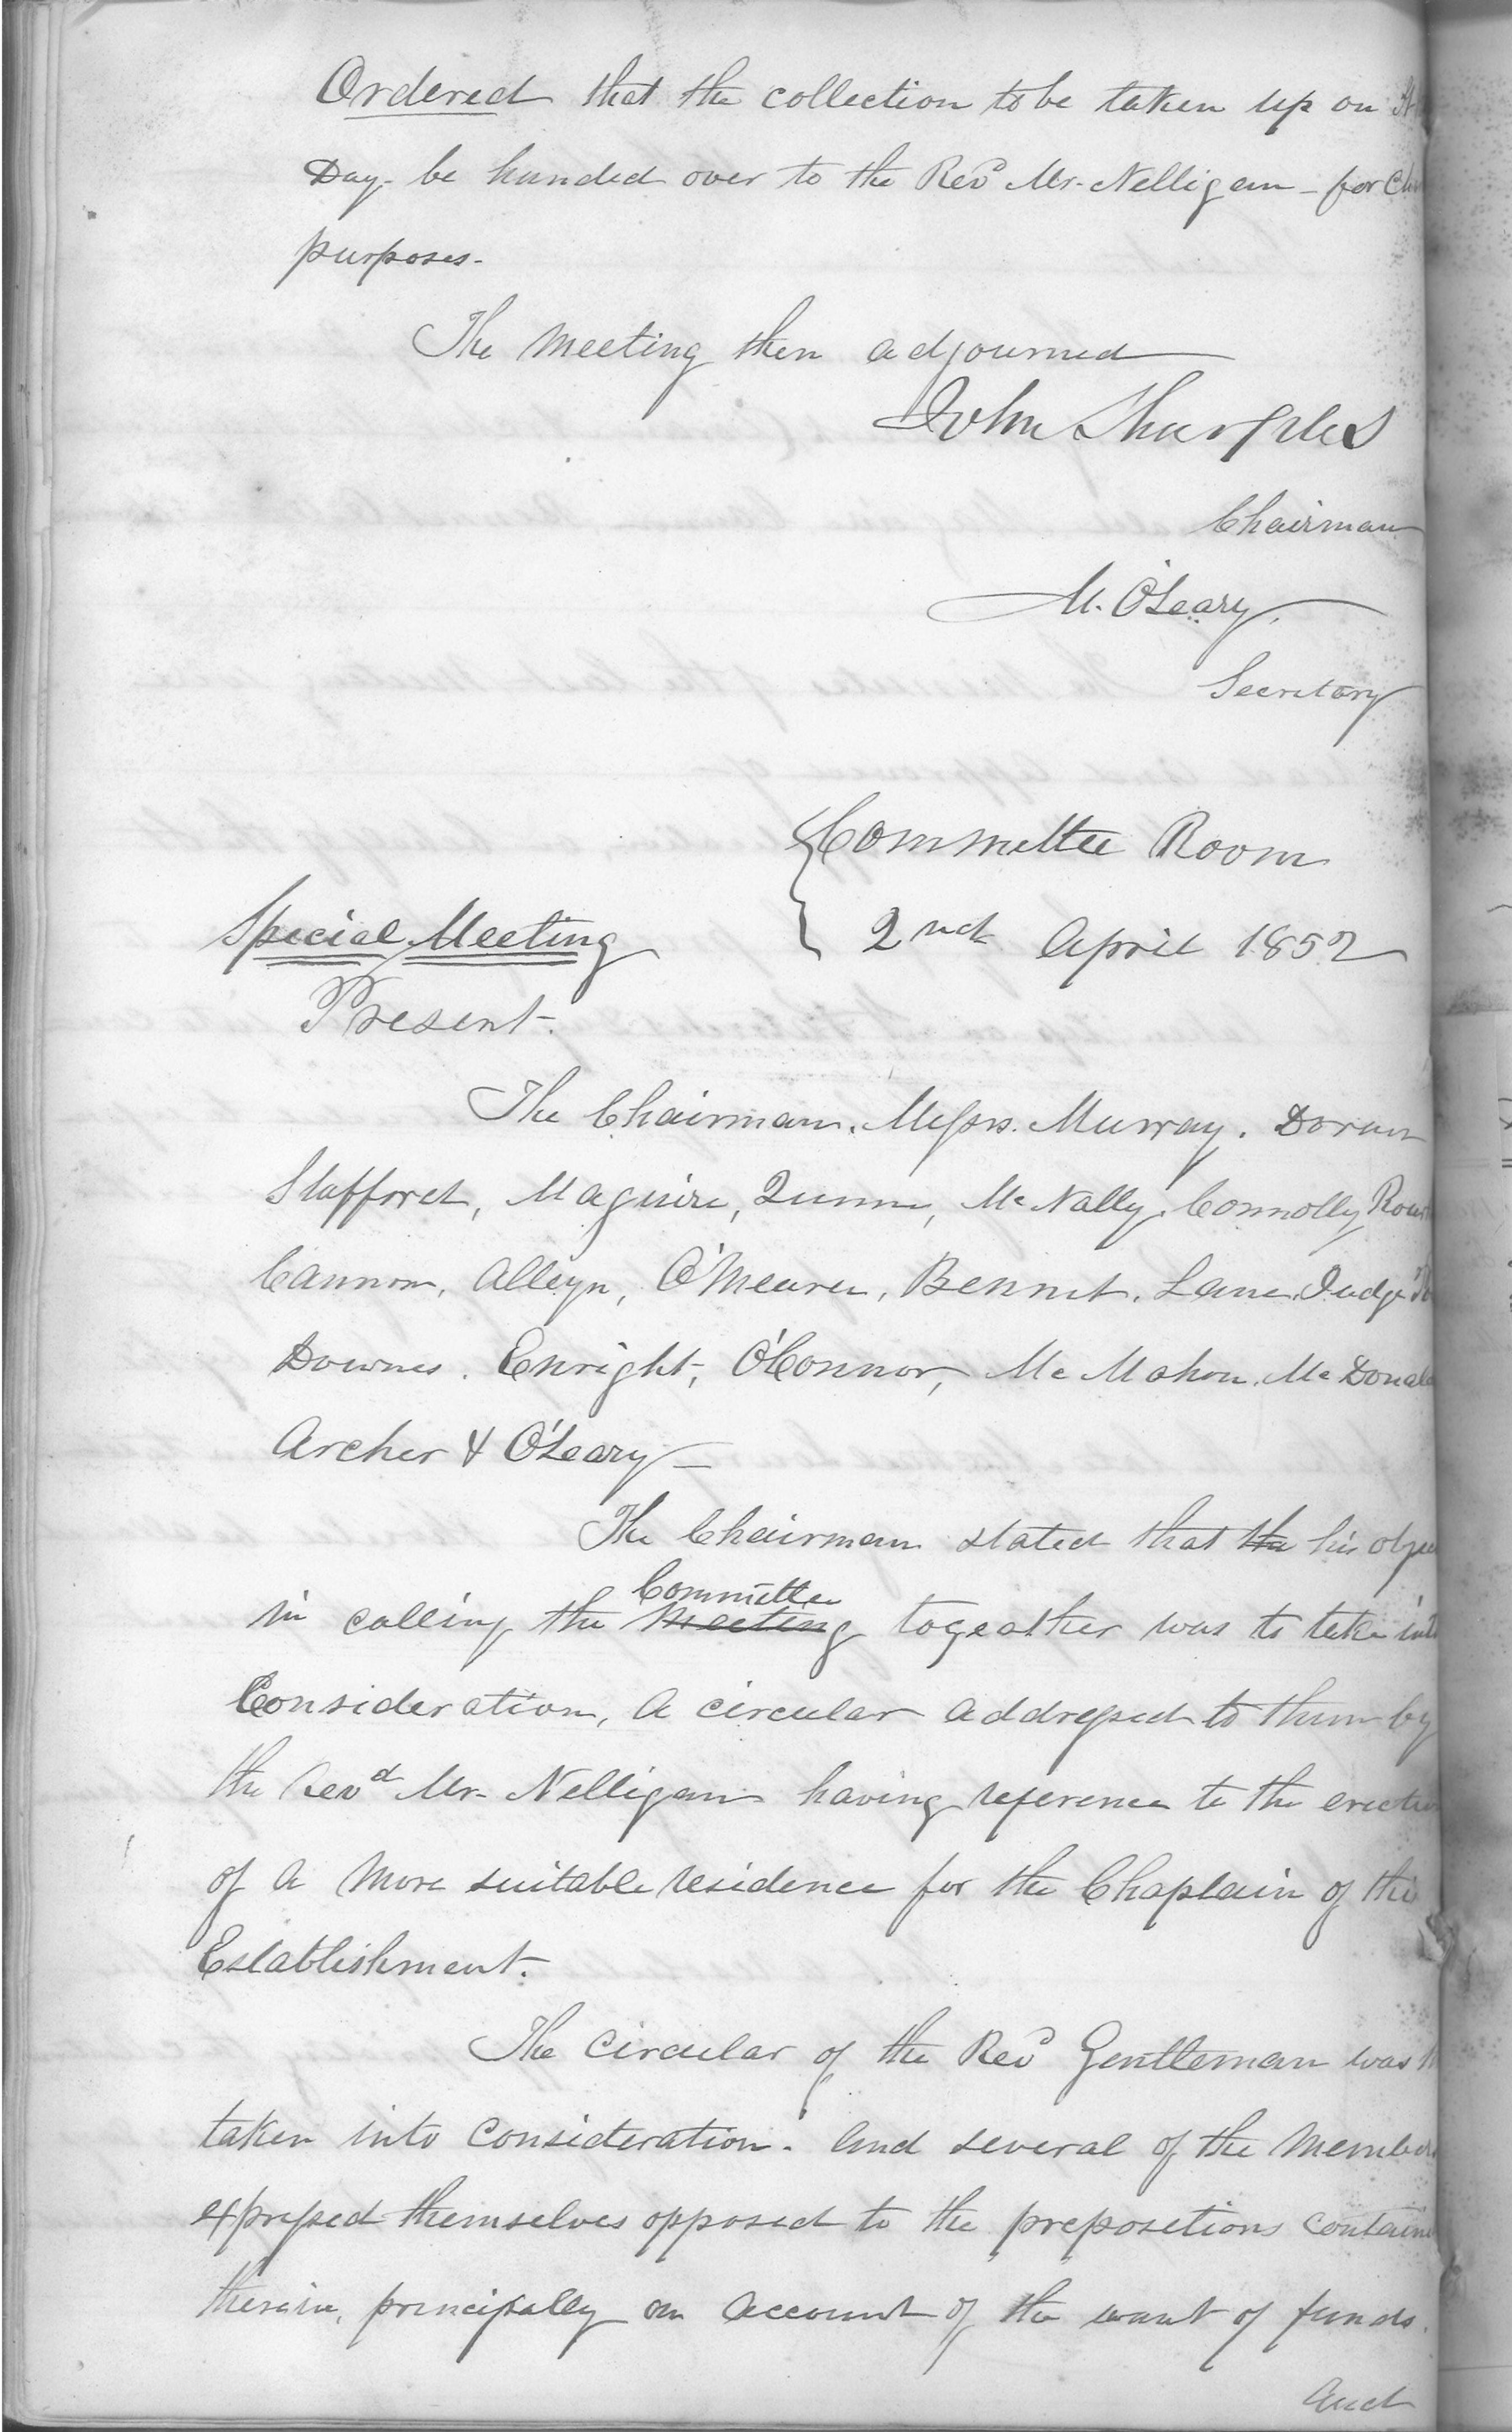 Ordered that the collection to be taken up on
Day be handed over to the Revd Mr. Nelligan - for
purposes.
The Meeting then adjourned
John Sharples
Chairman
M. O'Leary.
Secretary
Committee Room
2nd April 1852
Special Meeting
Present.
The Chairman. Messrs. Murray. Doran
Stafford, Maguire, Quinn, McNally, Connolly
Cannon, Alleyn, O'Meara, Bennet. Lane. Judge
Downes. Enright, O'Connor, McMahon. McDonald
Archer & O'Leary
The Chairman stated that the his object
Committee
in calling the Meeting togeather was to take into
Consideration, a circular addressed to them by
the Revd Mr. Nelligan having reference to the erection
of a more suitable residence for the Chaplain of this
Establishment.
The Circular of the Revd Gentleman was
taken into Consideration. And several of the Members
expressed themselves opposed to the prepositions contained
therein, principally on account of the want of funds.
And